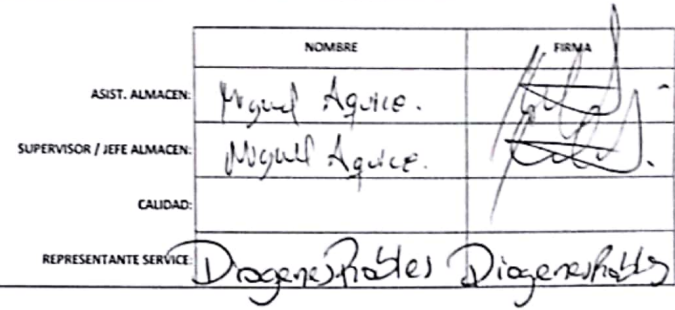 NOMBRE FIRMA
ASIST. ALMACEN: Miguel Aquice.
SUPERVISOR / JEFE ALMACEN: Miguel Aquice.
CALIDAD:
REPRESENTANTE SERVICE: Diogenes Robles Diogenes Robles